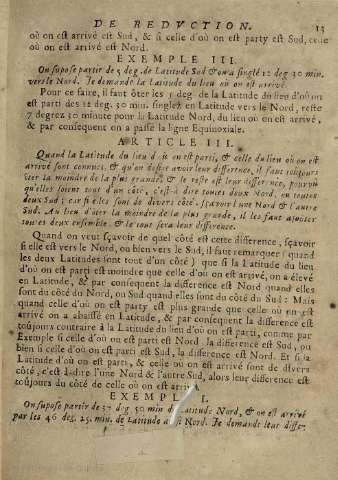 DE REDVCTION. 13
où on est arrivé est Sud, & si celle d'où on est party est Sud, celle
où on est arrivé est Nord.
EXEMPLE III.
On supose partir de 5 deg. de Latitude Sud & on a singlé 12 deg. 30 min.
vers le Nord. Je demande la Latitude du lieu où on est arrivé.
Pour ce faire, il faut ôter les 5 deg. de la Latitude du lieu d'où on
est parti des 12 deg. 30 min. singlez en Latitude vers le Nord, reste
7 degrez 30 minute pour la Latitude Nord, du lieu où on est arrivé,
& par consequent on a passé la ligne Equinoxiale.
ARTICLE III.
Quand la Latitude du lieu d'où on est parti, & celle du lieu où on est
arrivé sont connues, & qu'on desire avoir leur difference, il faut toûjours
ôter la moindre de la plus grande, & le reste est leur difference, pourvû
qu'elles soient tout d'un côté, c'est-à dire toutes deux Nord, ou toutes
deux Sud; car si elles sont de divers côté, sçavoir l'une Nord & l'autre
Sud. Au lieu d'ôter la moindre de la plus grande, il les faut ajoûter
toutes deux ensemble, & le tout sera leur difference.
Quand on veut sçavoir de quel côté est cette difference, sçavoir
si elle est vers le Nord, ou bien vers le Sud, il faut remarquer (quand
les deux Latitudes sont tout d'un côté) que si la Latitude du lieu
d'où on est parti est moindre que celle d'où on est arrivé, on a élevé
en Latitude, & par consequent la difference est Nord quand elles
sont du côté du Nord, ou Sud quand elles sont du côté du Sud: Mais
quand celle d'où on est party est plus grande que celle où on est
arrivé on a abaissé en Latitude, & par consequent la difference est
toujours contraire à la Latitude du lieu d'où on est parti, comme par
Exemple si celle d'où on est parti est Nord la difference est Sud, ou
bien si celle d'où on est parti est Sud, la difference est Nord. Et si la
Latitude d'où on est parti, & celle d'où on est arrivé sont de divers
côté, c'est à dire l'une Nord & l'autre Sud, alors leur difference est
toûjours du côté de celle où on est arrivé
EXEMPLE I.
On supose partir de 57 deg 50 min de Latitude Nord, & on est arrivé
par les 46 deg. 25. min. de Latitude Nord. Je demande leur differ-